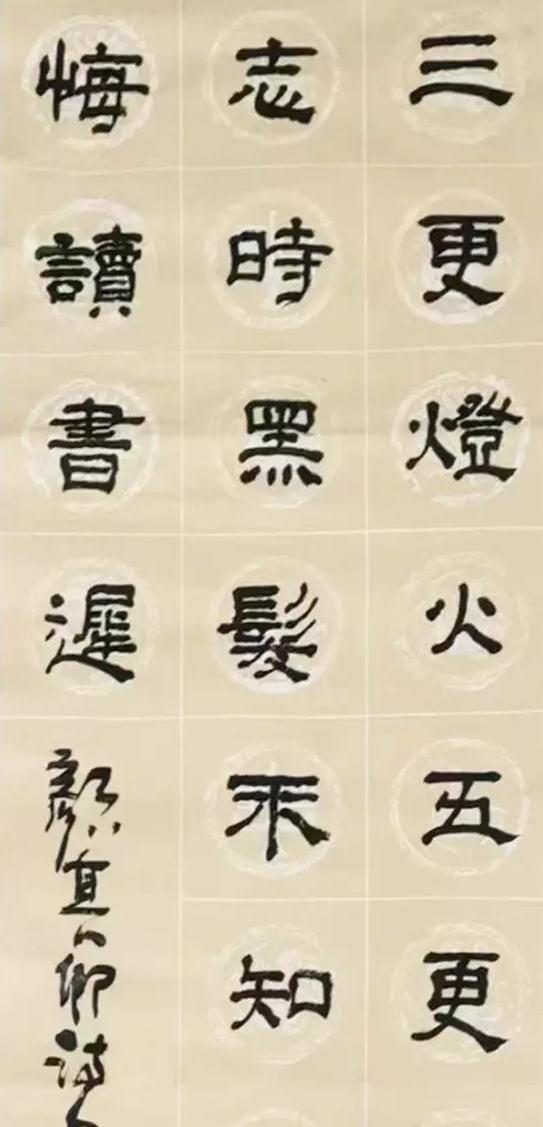 三更燈火五更
志時黑髮不知
悔讀書遲
顏真卿詩